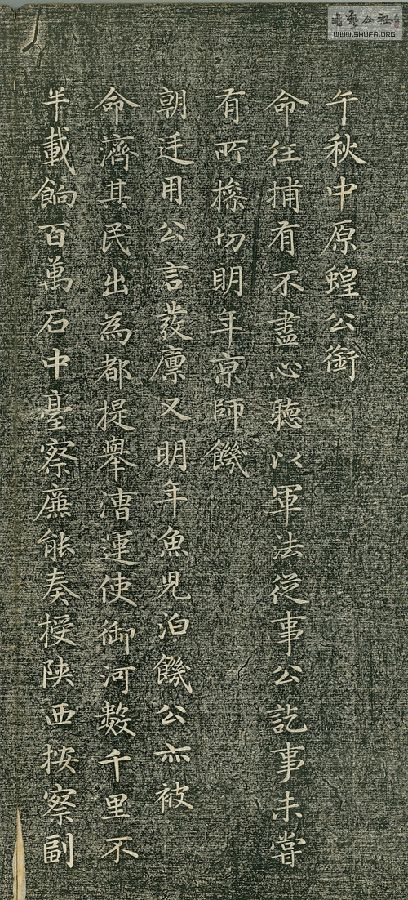 午秋中原蝗公銜
命往捕有不盡心聽以軍法從事公訖事未嘗
有所操切明年京師饑
朝廷用公言發廩又明年魚兒泊饑公亦被
命濟其民出為都提舉漕運使御河數千里不
半載餉百萬石中臺察廉能奏授陝西按察副
WWW.SHUFA.ORG